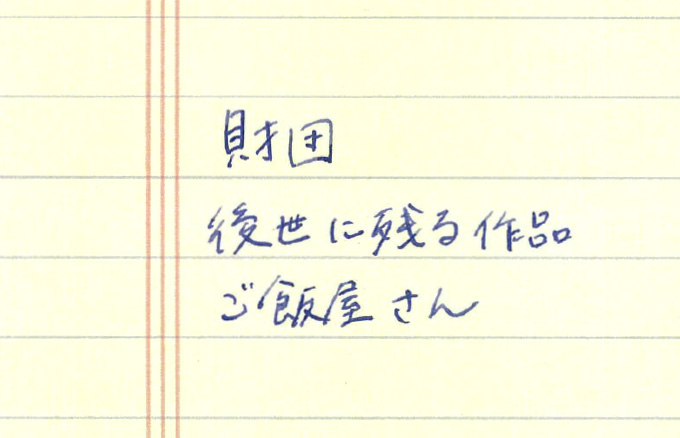 財団
後世に残る作品
ご飯屋さん